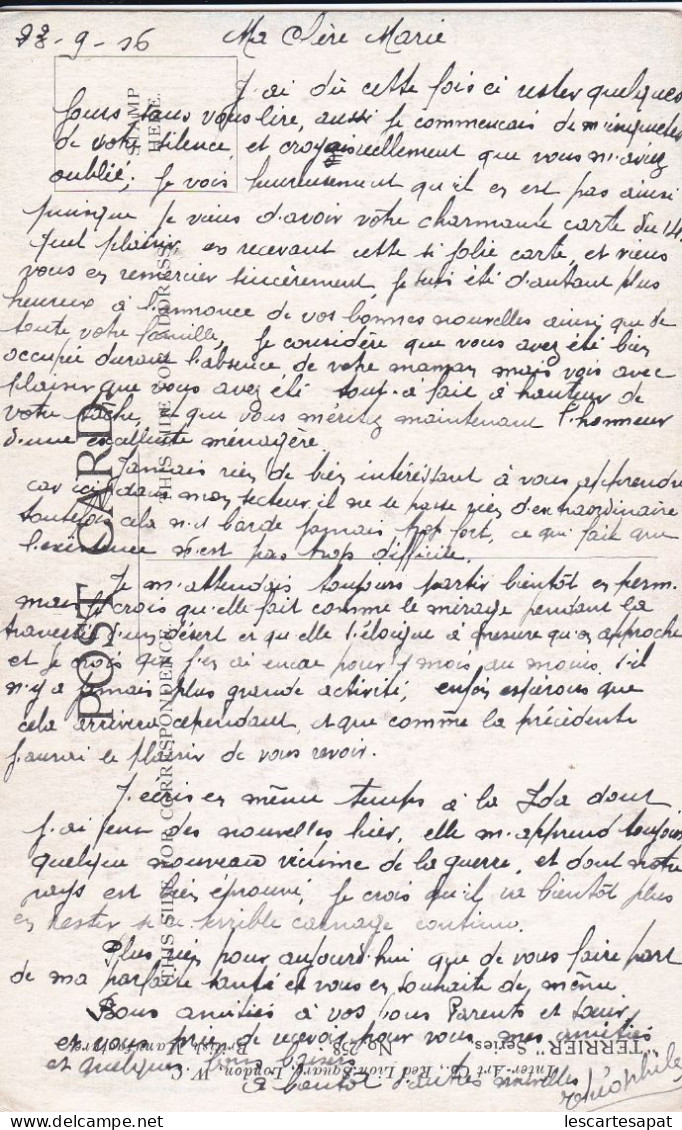 23-9-16 Ma Chère Marie
J'ai dû cette fois ci rester quelques
jours sans vous lire, aussi je commencais de m'inquieter
de votre silence et croyais réellement que vous m'aviez
oublié; Je vois heureusement qu'il en est pas ainsi
puisque je viens d'avoir votre charmante carte du 14.
quel plaisir en recevant cette si jolie carte, et viens
vous en remercier sincèrement, Je suis été d'autant plus
heureux à l'annonce de vos bonnes nouvelles ainsi que de
toute votre famille, Je considère que vous avez été bien
occupée durant l'absence de votre maman mais vois avec
plaisir que vous avez été tout à fait à hauteur de
votre tâche, et que vous méritez maintenant l'honneur
d'une excellente ménagère.
Jamais rien de bien intéressant à vous apprendre
car ici dans mon secteur il ne se passe rien d'extraordinaire
toutefois cela n'y barde jamais trop fort, ce qui fait que
l'existence n'est pas trop difficile.
Je m'attendais toujours partir bientôt en perm.
mais je crois qu'elle fait comme le mirage pendant la
traversée d'un désert et qu'elle s'éloigne à mesure qu'on approche
et je crois que j'en ai encore pour 1 mois au moins s'il
n'y a jamais plus grande activité, enfin espérons que
cela arrivera cependant, et que comme la précédente
j'aurai le plaisir de vous revoir.
J'écris en même temps à la Ida dont
j'ai eu des nouvelles hier, elle m'apprend toujours
quelque nouveau victime de la guerre, et dont notre
pays est bien éprouvé, Je crois qu'il va bientôt plus
en rester si ce terrible carnage continue.
Plus rien pour aujourd'hui que de vous faire part
de ma parfaite santé et vous en souhaite de même
Bons amitiés à vos bons Parents et Soeur
et vous prie de recevoir pour vous mes amitiés
et quelques bons baisers
à bientôt d'autres nouvelles
Théophile
STAMP
HERE.
POST CARD
THIS SIDE FOR ADDRESS.
THIS SIDE FOR CORRESPONDENCE.
"TERRIER" Series No. 258
Inter-Art Co., Red Lion Square, London, W.C.
British Manufacture
© lescartesapat